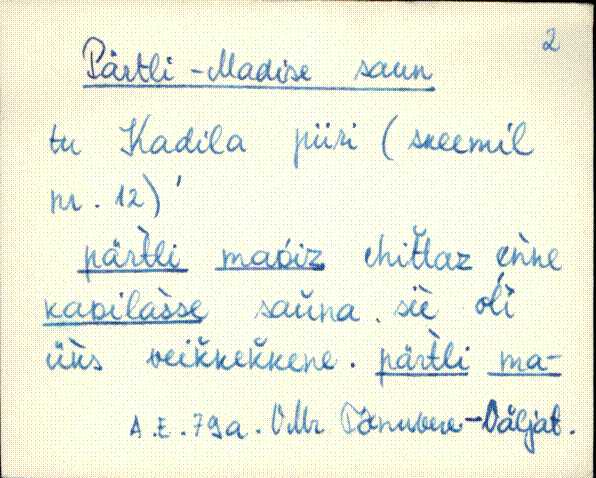 2
Pärtli-Madise saun
tu Kadila piiri (skeemil
nr. 12)'
pärt̀li maᴅiz ehit̆taz en̆ne
kaᴅilas̀se sau̯na. siè oĺi
ük̀s veik̆kek̆kene. pärt̀li ma-
A.E. 79a. VMr Põnuvere-Väljat.